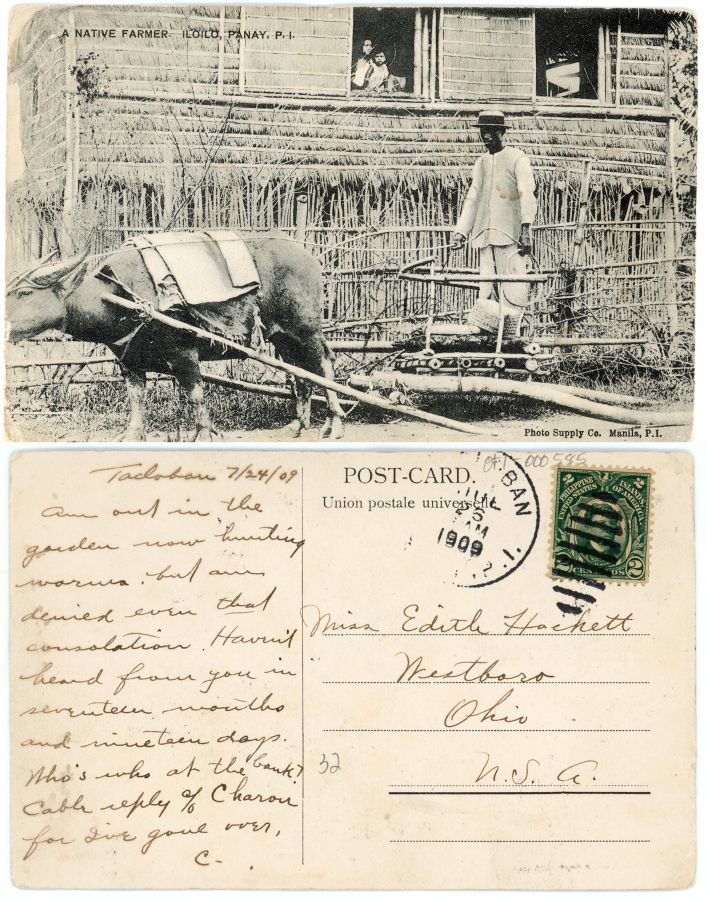 A NATIVE FARMER. ILOILO, PANAY, P. I.
Photo Supply Co. Manila, P.I.
Tacloban 7/24/09
am out in the
garden now hunting
worms. but am
denied even that
consolation. Haven't
heard from you in
seventeen months
and nineteen days.
Who's who at the bank?
Cable reply c/o Charon
for I've gone over,
C-.
POST-CARD.
Union postale universelle
OFI-000585
BAN
25
AM
1909
P. I.
PHILIPPINE ISLANDS
UNITED STATES OF AMERICA
2 CENTAVOS 2
Miss Edith Hackett
Westboro
Ohio
U.S.A.
32